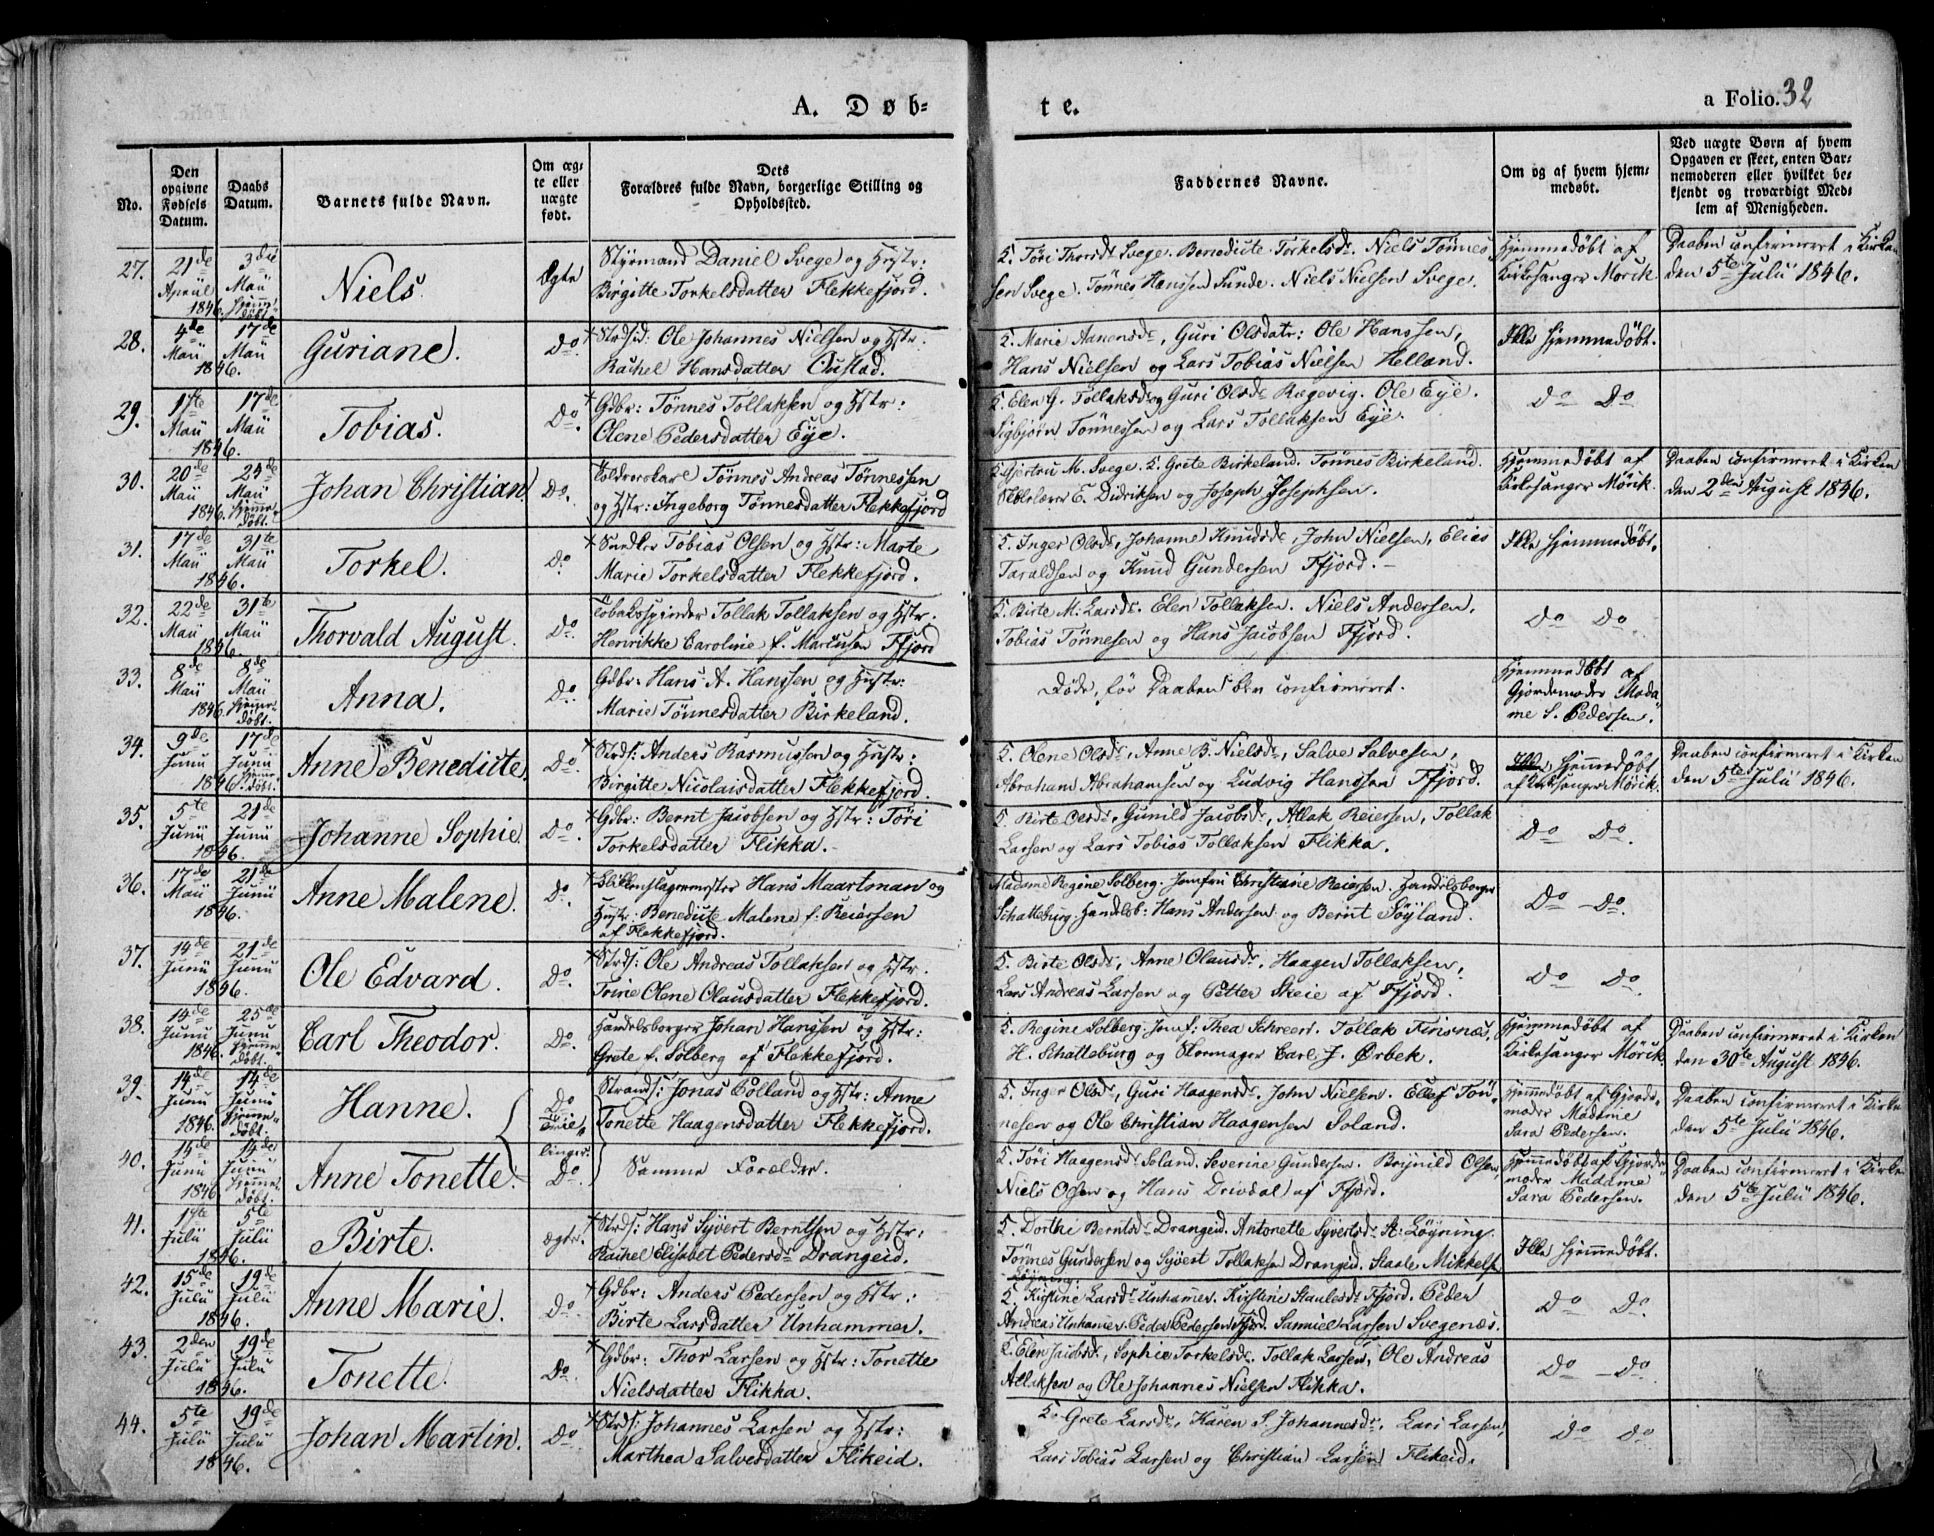 A. Døb-
te.
a Folio. 32
No.
Den opgivne Fødsels Datum.
Daabs Datum.
Barnets fulde Navn.
Om ægte eller uægte født.
Dets Forældres fulde Navn, borgerlige Stilling og Opholdssted.
Faddernes Navne.
Om og af hvem hjemmedøbt.
Ved uægte Børn af hvem Opgaven er skeet, enten Barnemoderen eller hvilket bekjendt og troværdigt Medlem af Menigheden.
27. 21de April 1846. 3die Maii hjemmedøbt. Niels. Ægte
Styrmand Daniel Svege og Hustr:
Birgitte Torkelsdatter Flekkefjord.
Töri Thorsdr Svege. Benedicte Torkelsdr. Niels Tönnes
sen Svege. Tönnes Hanssen Sunde. Niels Nielsen Svege.
Hjemmedöbt af
Kirkesanger Mörik.
Daaben confirmeret i Kirken
den 5te Julii 1846.
28. 4de Maii 1846. 17de Maii Guriane. Do
Strdsid: Ole Johannes Nielsen og Hstr.
Rachel Hansdatter Austad.
Marie Aanensdr, Guri Olsdatr: Ole Hanssen,
Hans Nielsen og Lars Tobias Nielsen Helland.
Ikke hjemmedöbt.
29. 1ste Maii 1846. 17de Maii Tobias. Do.
Gdbr: Tönnes Tollaksen og Hstr:
Olene Pedersdatter Eye.
Elen G. Tollaksdr og Guri Olsdr Rægevig. Ole Eye.
Sigbjörn Tönnessen og Lars Tollaksen Eye.
Do Do
30. 20de Maii 1846. 24de Maii hjemmedöbt. Johan Christian. Do.
Toldroerskarl Tönnes Andreas Tönnessen
og Hstr: Ingeborg Tönnesdatter Flekkefjord
Gjertru M. Svege. K. Grete Birkeland. Tönnes Birkeland.
Skolelærer E. Didriksen og Joseph Josephsen.
Hjemmedöbt af
Kirkesanger Mörik.
Daaben confirmeret i Kirken
den 2den August 1846.
31. 17de Maii 1846. 31te Maii Torkel. Do.
Tobias Olsen og Hstr: Marte
Marie Torkelsdatter Flekkefjord.
Inger Olsdr, Johanne Knudsdr, John Nielsen, Elias
Taraldsen og Knud Gundersen Ffjord.
Ikke hjemmedöbt.
32. 22de Maii 1846. 31te Maii Thorvald August. Do
Tobaksspinder Tollak Tollaksen og Hstr.
Henrikke Caroline f. Marcusen Ffjord
Birte M: Larsdr. Elen Tollaksen. Niels Andersen,
Tobias Tönnesen og Hans Jacobsen Ffjord.
Do Do.
33. 8de Maii 1846. 8de Maii hjemmedöbt. Anna. Do
Gdbr. Hans A. Hanssen og Hustr:
Marie Tönnesdatter Birkeland.
Döde, för Daaben blev confirmeret.
Hjemmedöbt af
Gjordemoder Mada
me S. Pedersen.
34. 9de Junii 1846. 17de Junii hjemmedöbt. Anne Benedicte. Do
Strds: Anders Rasmussen og Hustr:
Birgitte Nicolaisdatter Flekkefjord.
Olene Olsdr, Anne B. Nielsdr, Salve Salvesen,
Abraham Abrahamsen og Ludvig Hanssen Ffjord.
Ikke hjemmedöbt
af Kirkesanger Mörik.
Daaben confirmeret i Kirken
den 5te Julii 1846.
35. 5te Junii 1846. 21de Junii Johanne Sophie. Do.
Gdbr: Bernt Jacobsen og Hstr: Töri
Torkelsdatter Flikka.
Birte Olsdr, Gunild Jacobsdr, Atlak Reiersen, Tollak
Larsen og Lars Tobias Tollaksen Flikka.
Do Do.
36. 17de Maii 1846. 21de Junii Anne Malene. Do.
Blikkenslagermester Hans Maartman og
Hustr: Benedicte Malene f: Reiersen
af Flekkefjord.
Madame Regine Solberg. Jomfru Christiane Reiersen. Handelsborger
Schatteburg. Handelsb: Hans Andersen og Bernt Söyland.
Do Do.
37. 14de Junii 1846. 21de Junii Ole Edvard. Do.
Strds: Ole Andreas Tollaksen og Hstr.
Trine Olene Olausdatter Flekkefjord.
Birte Olsdr, Anne Olausdr, Haagen Tollaksen,
Lars Andreas Larsen og Petter Skeie af Ffjord.
Do Do.
38. 14de Junii 1846. 25de Junii hjemmedöbt. Carl Theodor. Do.
Handelsborger Johan Hanssen og Hstr:
Grete f. Solberg af Flekkefjord.
Regine Solberg. Jomf: Thea Schreert. Tollak Firisnes,
H. Schatteburg og Skomager Carl J. Ørbek.
Hjemmedöbt af
Kirkesanger Mörik
Daaben confirmeret i Kirken
den 30te August 1846.
39. 14de Junii 1846. 14de Junii hjemmedöbt. Hanne. Do Tvil-
Strands: Jonas Solland og Hstr: Anne
Tonette Haagensdatter Flekkefjord.
Inger Olsdr, Guri Haagensdr. John Nielsen. Ellef Tön-
nesen og Ole Christian Haagensen Soland.
Hjemmedöbt af Gjorde-
moder Madame
Sara Pedersen.
Daaben confirmeret i Kirken
den 5te Julii 1846.
40. 14de Junii 1846 14de Junii hjemmedöbt. Anne Tonette. linger Do.
Samme Forældre.
Töri Haagensdr Soland. Severine Gundersen. Brynild Olsen,
Niels Olsen og Hans Drivdal af Ffjord.
Hjemmedöbt af Gjorde
moder Madame
Sara Pedersen.
Daaben confirmeret i Kirken
den 5te Julii 1846.
41. 1ste Julii 1846. 5te Julii Birte. ægte.
Strds: Hans Syvert Berntsen og Hstr:
Rachel Elisabet Pedersdr Drangeid.
Dorthe Berntsdr Drangeid. Antonette Syvertsdr St: Löyning.
Tönnes Gundersen og Syvert Tollaksen Drangeid. Staale Mikkels.
Löyning.
Ikke hjemmedöbt.
42. 15de Julii 1846. 19de Julii Anne Marie. Do
Gdbr: Anders Pedersen og Hstr.:
Birte Larsdatter Unhammer.
Kirstine Larsdr Unhamer. Kirstine Staalesdr Ffjord. Peder
Andreas Unhamer. Peder Pedersen Ffjord. Samuel Larsen Svegenæs.
Do Do.
43. 2den Julii 1846. 19de Julii Tonette. Do
Gdbr: Thor Larsen og Hstr: Tonette
Nielsdatter Flikka.
Elen Jacobsdr, Sophie Torkelsdr. Tollak Larsen, Ole Andreas
Atlaksen og Ole Johannes Nielsen Flikka.
Do Do.
44. 5te Julii 1846. 19de Julii Johan Martin. Do
Strds: Johannes Larsen og Hstr:
Marthea Salvesdatter Flikeid.
Grete Larsdr, Karen S. Johannesdr. Lars Larsen,
Lars Tobias Larsen og Christian Larsen Flikeid.
Do Do.